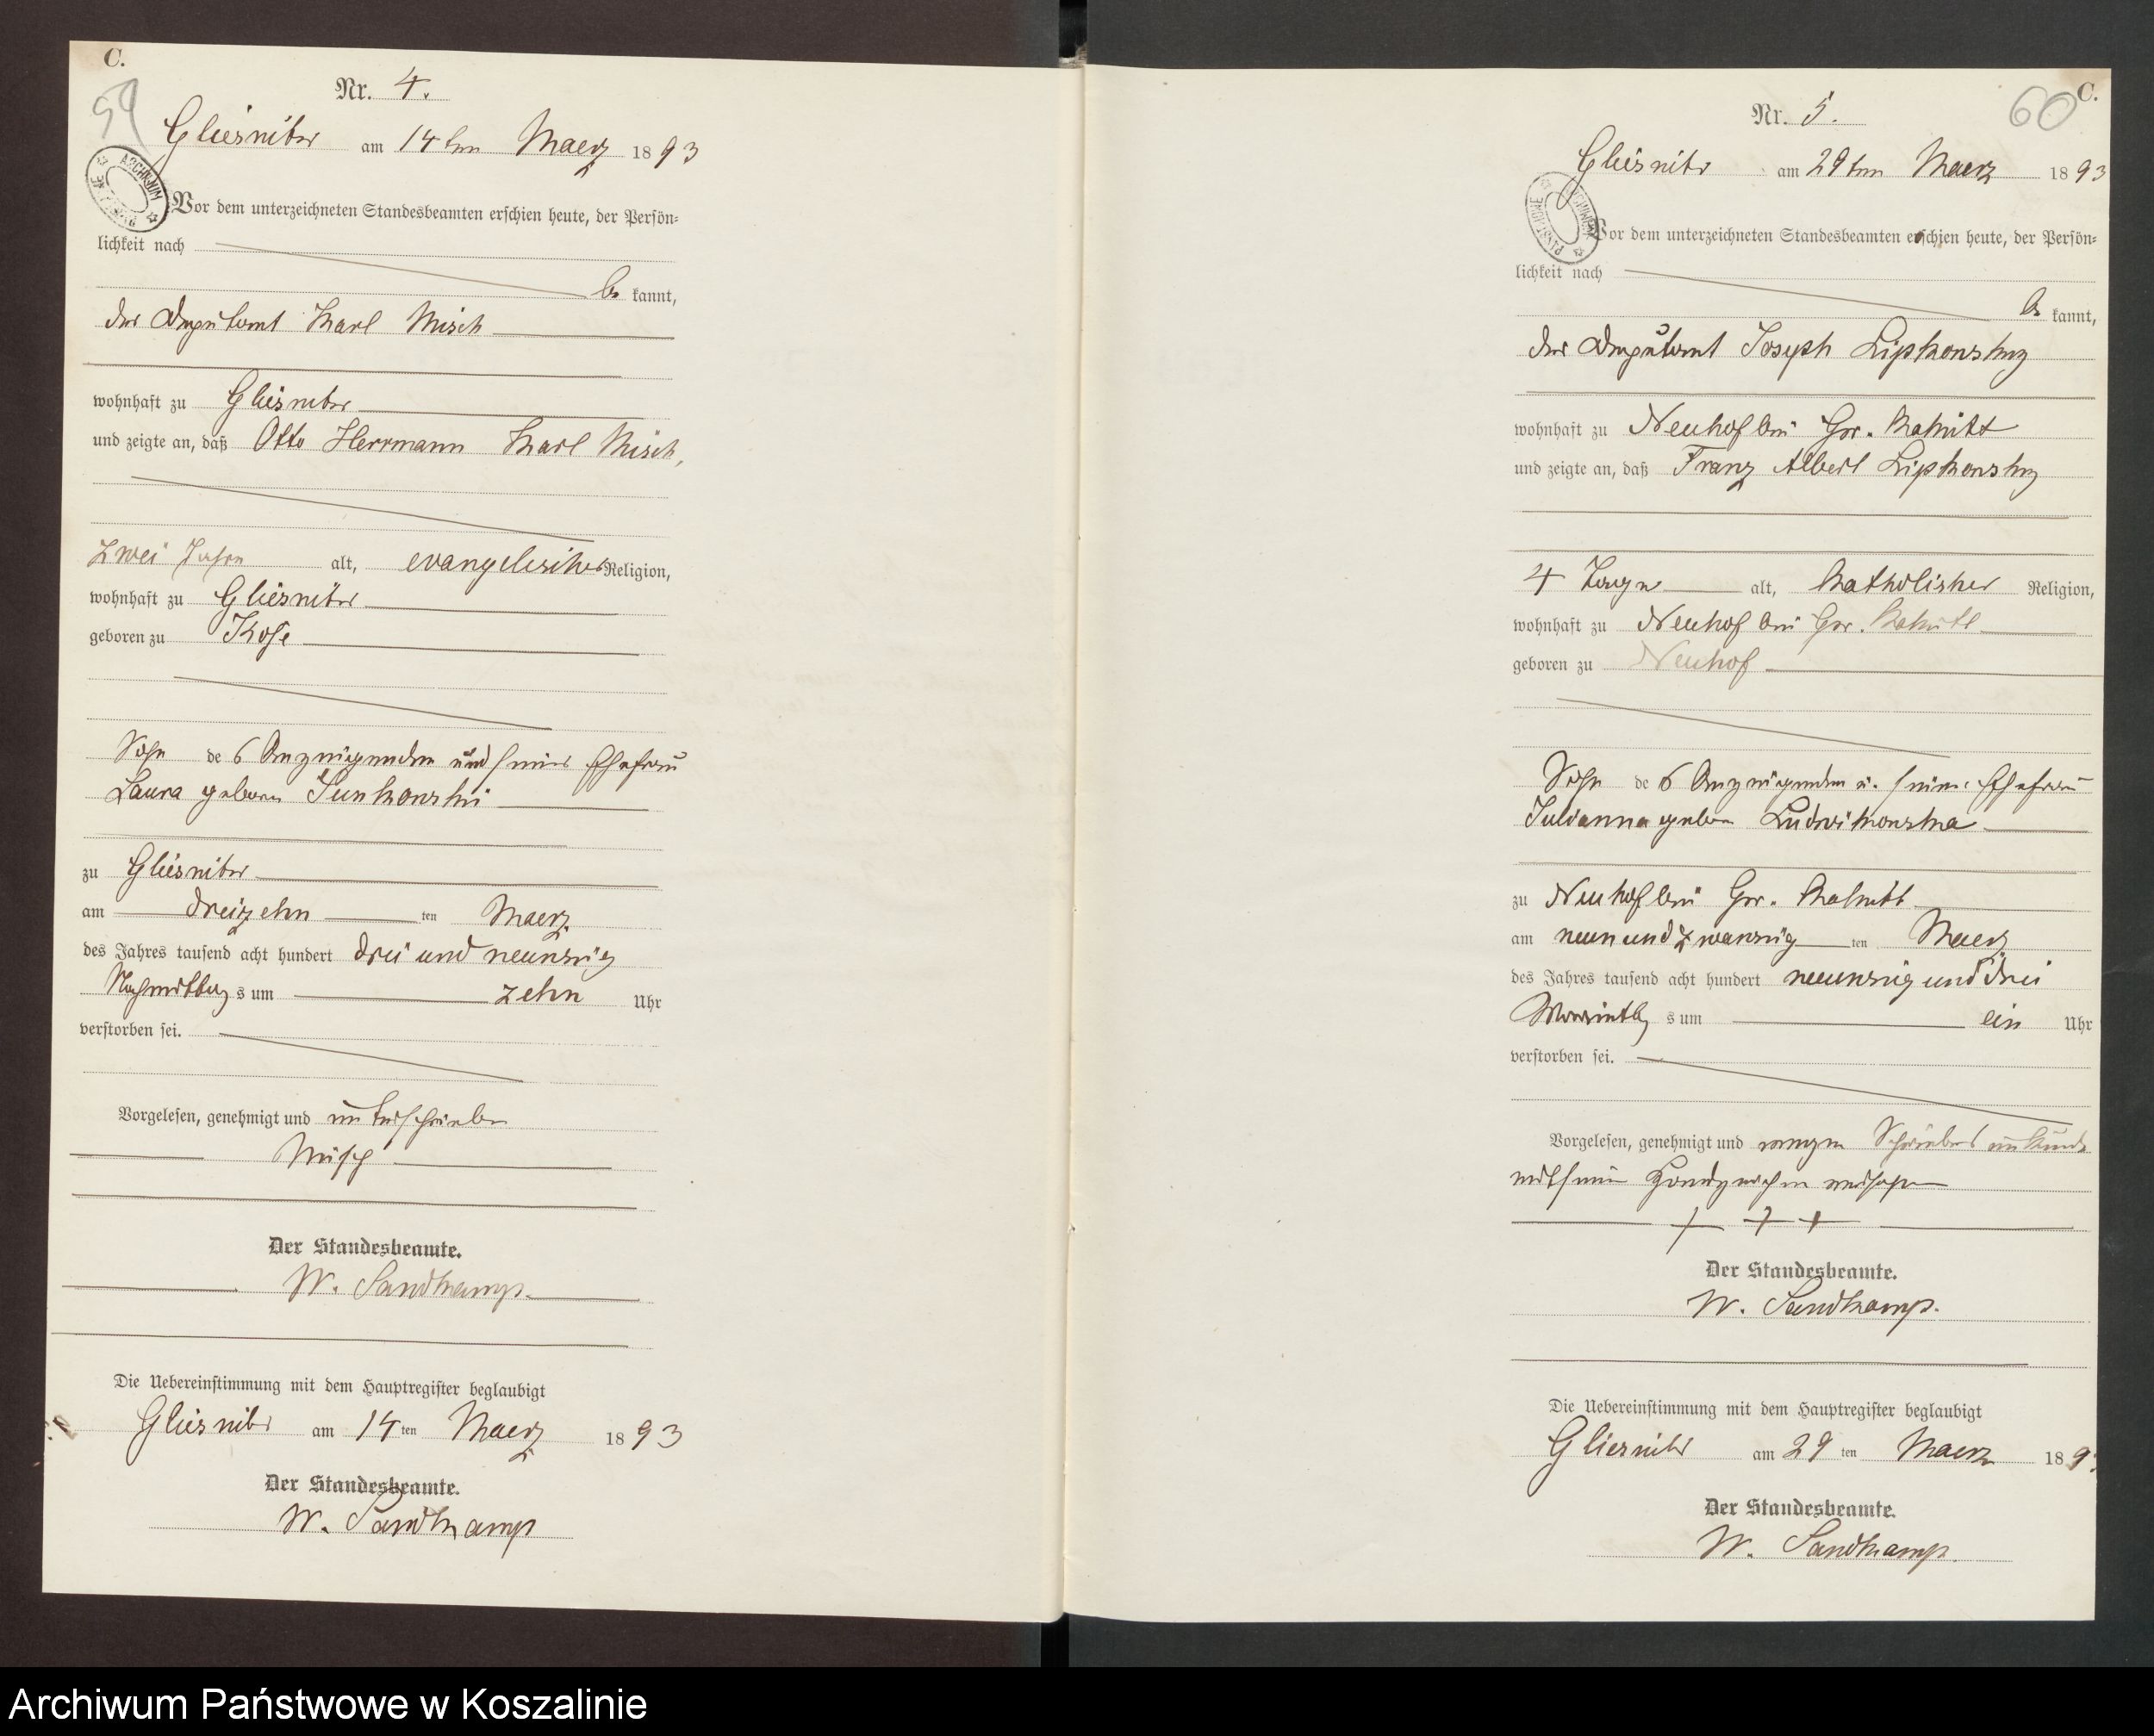 C.
59
Nr. 4.
Gliesnitz am 14ten Maerz 1893
ARCHIWUM
Vor dem unterzeichneten Standesbeamten erschien heute, der Persön=
lichkeit nach
be kannt,
der Deputant Karl Misch
wohnhaft zu Gliesnitz
und zeigte an, daß Otto Herrmann Karl Misch,
zwei Jahre alt, evangelischer Religion,
wohnhaft zu Gliesnitz
geboren zu Kose
Sohn des Anzeigenden und seiner Ehefrau
Laura geboren
zu Gliesnitz
am dreizehn ten Maerz
des Jahres tausend acht hundert drei und neunzig
Nachmittags um zehn Uhr
verstorben sei.
Vorgelesen, genehmigt und unterschrieben
Misch
Der Standesbeamte.
W. Sandkamp.
Die Uebereinstimmung mit dem Hauptregister beglaubigt
Gliesnitz am 14ten Maerz 1893
Der Standesbeamte.
W. Sandkamp
C.
60
Nr. 5.
Gliesnitz am 29ten Maerz 1893
Vor dem unterzeichneten Standesbeamten erschien heute, der Persön=
lichkeit nach
be kannt,
der Deputant Joseph Lipkonsky
wohnhaft zu Neuhof bei Gr.
und zeigte an, daß Franz Albert Lipkonsky
4 Tage alt, katholischer Religion,
wohnhaft zu Neuhof bei Gr.
geboren zu Neuhof
Sohn des Anzeigenden u. seiner Ehefrau
Julianna geboren Ludwikonska
zu Neuhof bei Gr.
am neun und zwanzig ten Maerz
des Jahres tausend acht hundert neunzig und drei
Vormittags um ein Uhr
verstorben sei.
Vorgelesen, genehmigt und wegen Schreibens unkunde
mit seinem Handzeichen versehen
+ + +
Der Standesbeamte.
W. Sandkamp.
Die Uebereinstimmung mit dem Hauptregister beglaubigt
Gliesnitz am 29 ten Maerz 189
Der Standesbeamte.
W. Sandkamp.
Archiwum Państwowe w Koszalinie